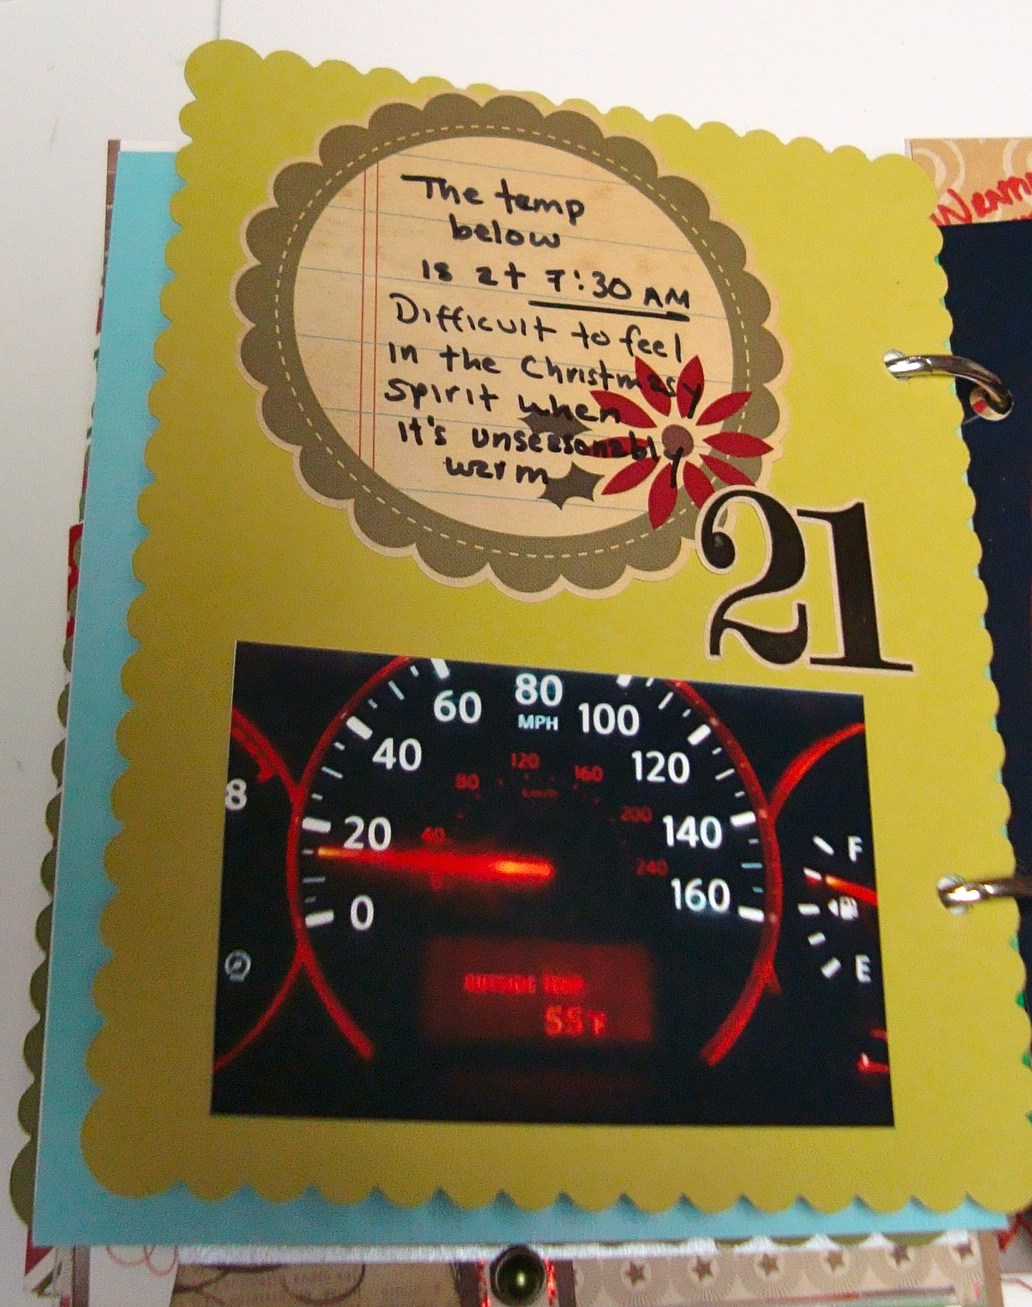 The temp
below
is at 7:30 AM
Difficult to feel
in the Christmasy
spirit when
it's unseasonably
warm
21
60 80 100
MPH
40 120
20 140
0 160
80 120 160
km/h
40 200
0 240
8
F
E
OUTSIDE TEMP
55°F